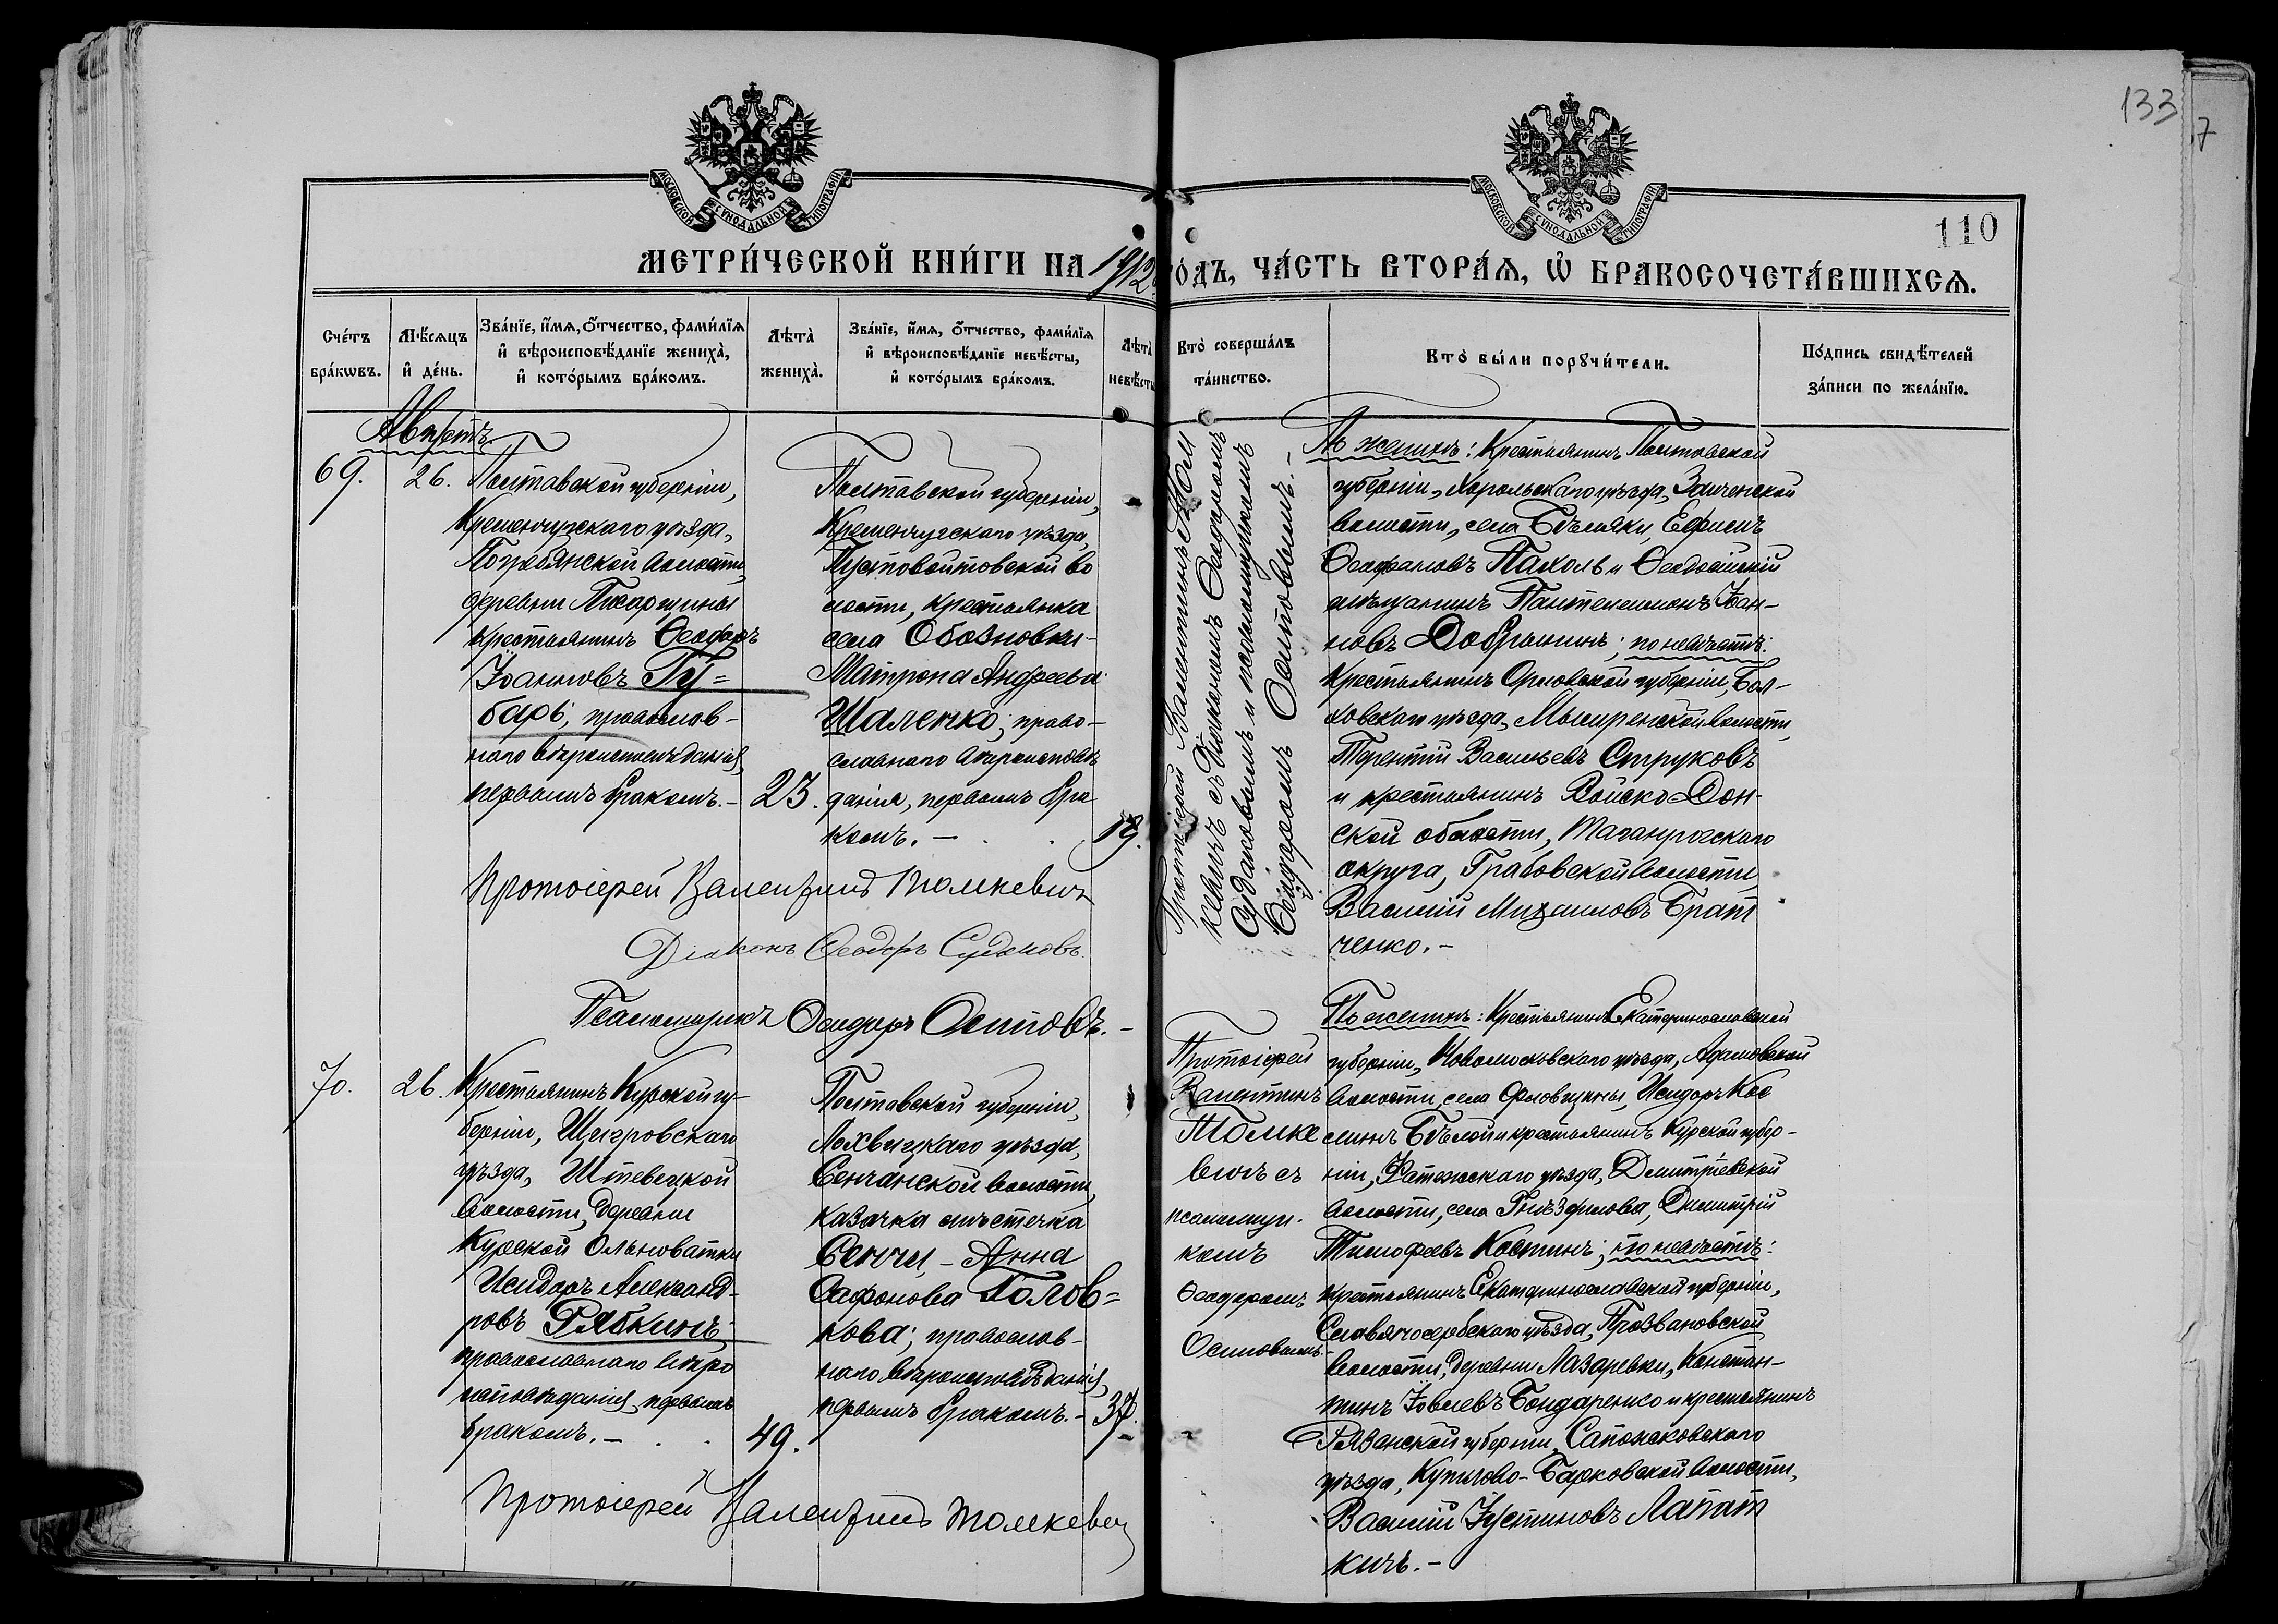 133
7
МОСКОВСКОЙ СѴНОДАЛЬНОЙ ТИПОГРАФІИ
МОСКОВСКОЙ СѴНОДАЛЬНОЙ ТИПОГРАФІИ
110
МЕТРИ́ЧЕСКОЙ КНИ́ГИ НА 1912 ГО́ДЪ, ЧА́СТЬ ВТОРА́Ѧ, Ѡ҆ БРАКОСОЧЕТА́ВШИХСѦ.
Сче́тъ бра́кѡвъ.
Мѣ́сѧцъ и҆ де́нь.
Зва́нїе, и҆́мѧ, ѻ҆́тчество, фами́лїѧ и҆ вѣроисповѣ́данїе жениха̀, и҆ кото́рымъ бра́комъ.
Лѣта̀ жениха̀.
Зва́нїе, и҆́мѧ, ѻ҆́тчество, фами́лїѧ и҆ вѣроисповѣ́данїе невѣ́сты, и҆ кото́рымъ бра́комъ.
Лѣта̀ невѣ́сты
Кто̀ соверша́лъ та́инство.
Кто̀ бы́ли порꙋчи́тели.
По́дпись свидѣ́телей за́писи по жела́нїю.
Августъ.
69.
26.
Полтавской губерніи,
Кременчугскаго уѣзда,
Погребянской волости,
деревни Писарщины
крестьянинъ Ѳеодоръ
Іоанновъ Гу=
барь; православ-
наго вѣроисповѣданія,
первымъ бракомъ.-
23.
Полтавской губерніи,
Кременчугскаго уѣзда,
Пустовойтовской во
лости, крестьянка
села Обозновки-
Матрона Андреева
Шаленко; право-
славнаго вѣроисповѣ
данія, первымъ бра
комъ. -
19.
Протоіерей Валентинъ Томкевичъ
Діаконъ Ѳеодоръ Судаковъ.
Псаломщикъ Ѳеодоръ Осиповъ.-
Протоіерей Валентинъ Том
кевичъ съ Діакономъ Ѳеодоромъ
Судаковымъ и псаломщикомъ
Ѳеодоромъ Осиповымъ.-
По женихѣ: Крестьянинъ Полтавской
губерніи, Хорольскаго уѣзда, Заиченской
волости, села Бѣляки, Ефимъ
Ѳеофановъ Пахоль и Ѳеодосійскій
мѣщанинъ Пантелеимонъ Іоан-
новъ Добрынинъ; по невѣстѣ:
Крестьянинъ Орловской губерніи, Бол-
ховскаго уѣзда, волости,
Терентій Васильевъ Струковъ
и крестьянинъ Войска Дон-
ской области, Таганрогскаго
округа, Грабовской волости,
Василій Михаиловъ Брат
ченко.-
70.
26.
Крестьянинъ Курской гу-
берніи, Щигровскаго
уѣзда, волости, деревни
Курской Ольховатки
Исидоръ Александ-
ровъ Рябкинъ;
православнаго вѣро
исповѣданія, первымъ
бракомъ.-
49.
Полтавской губерніи,
Лохвицкаго уѣзда,
Сенчанской волости,
казачка мѣстечка
Сенчи, - Анна
Сафонова Голов=
кова; православ-
наго вѣроисповѣданія,
первымъ бракомъ.-
37.
Протоіерей Валентинъ Томкевич
Протоіерей
Валентинъ
Томке
вичъ съ
псаломщи-
комъ
Ѳеодоромъ
Осиповымъ.
По женихѣ: Крестьянинъ Екатеринославской
губерніи, Новомосковскаго уѣзда, Адамовской
волости, села Орловщины, Исидоръ Кос
минъ Бѣлой и крестьянинъ Курской губер-
ніи, Фатежскаго уѣзда, Дмитріевской
волости, села Гнѣздилова, Димитрій
Тимофеевъ Костинъ; по невѣстѣ:
крестьянинъ Екатеринославской губерніи,
Славяносербскаго уѣзда,
волости, деревни Лазаревки, Констан-
тинъ Іовлевъ Бондаренко и крестьянинъ
Рязанской губерніи, Сапожковскаго
уѣзда, волости,
Василій Іустиновъ Лапат
кинъ.-